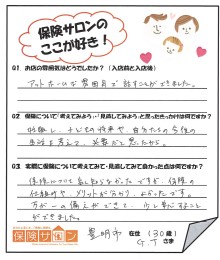 保険サロンの
ここが好き！
Q1. お店の雰囲気はどうでしたか？（入店前と入店後）
アットホームな雰囲気で話すことができました。
Q2. 保険について「考えてみよう」・「見直してみよう」と思ったきっかけは何ですか？
妊娠し、子どもの将来や自分たちの今後の
Q3. 実際に保険について考えてみて・見直してみて良かった点は何ですか？
保険について
仕組みや、メリットが分かり、よかったです。
万が一の備えができて、少し安心すること
ができました。
保険サロン
豊明市 在住（30歳）
G.T さま